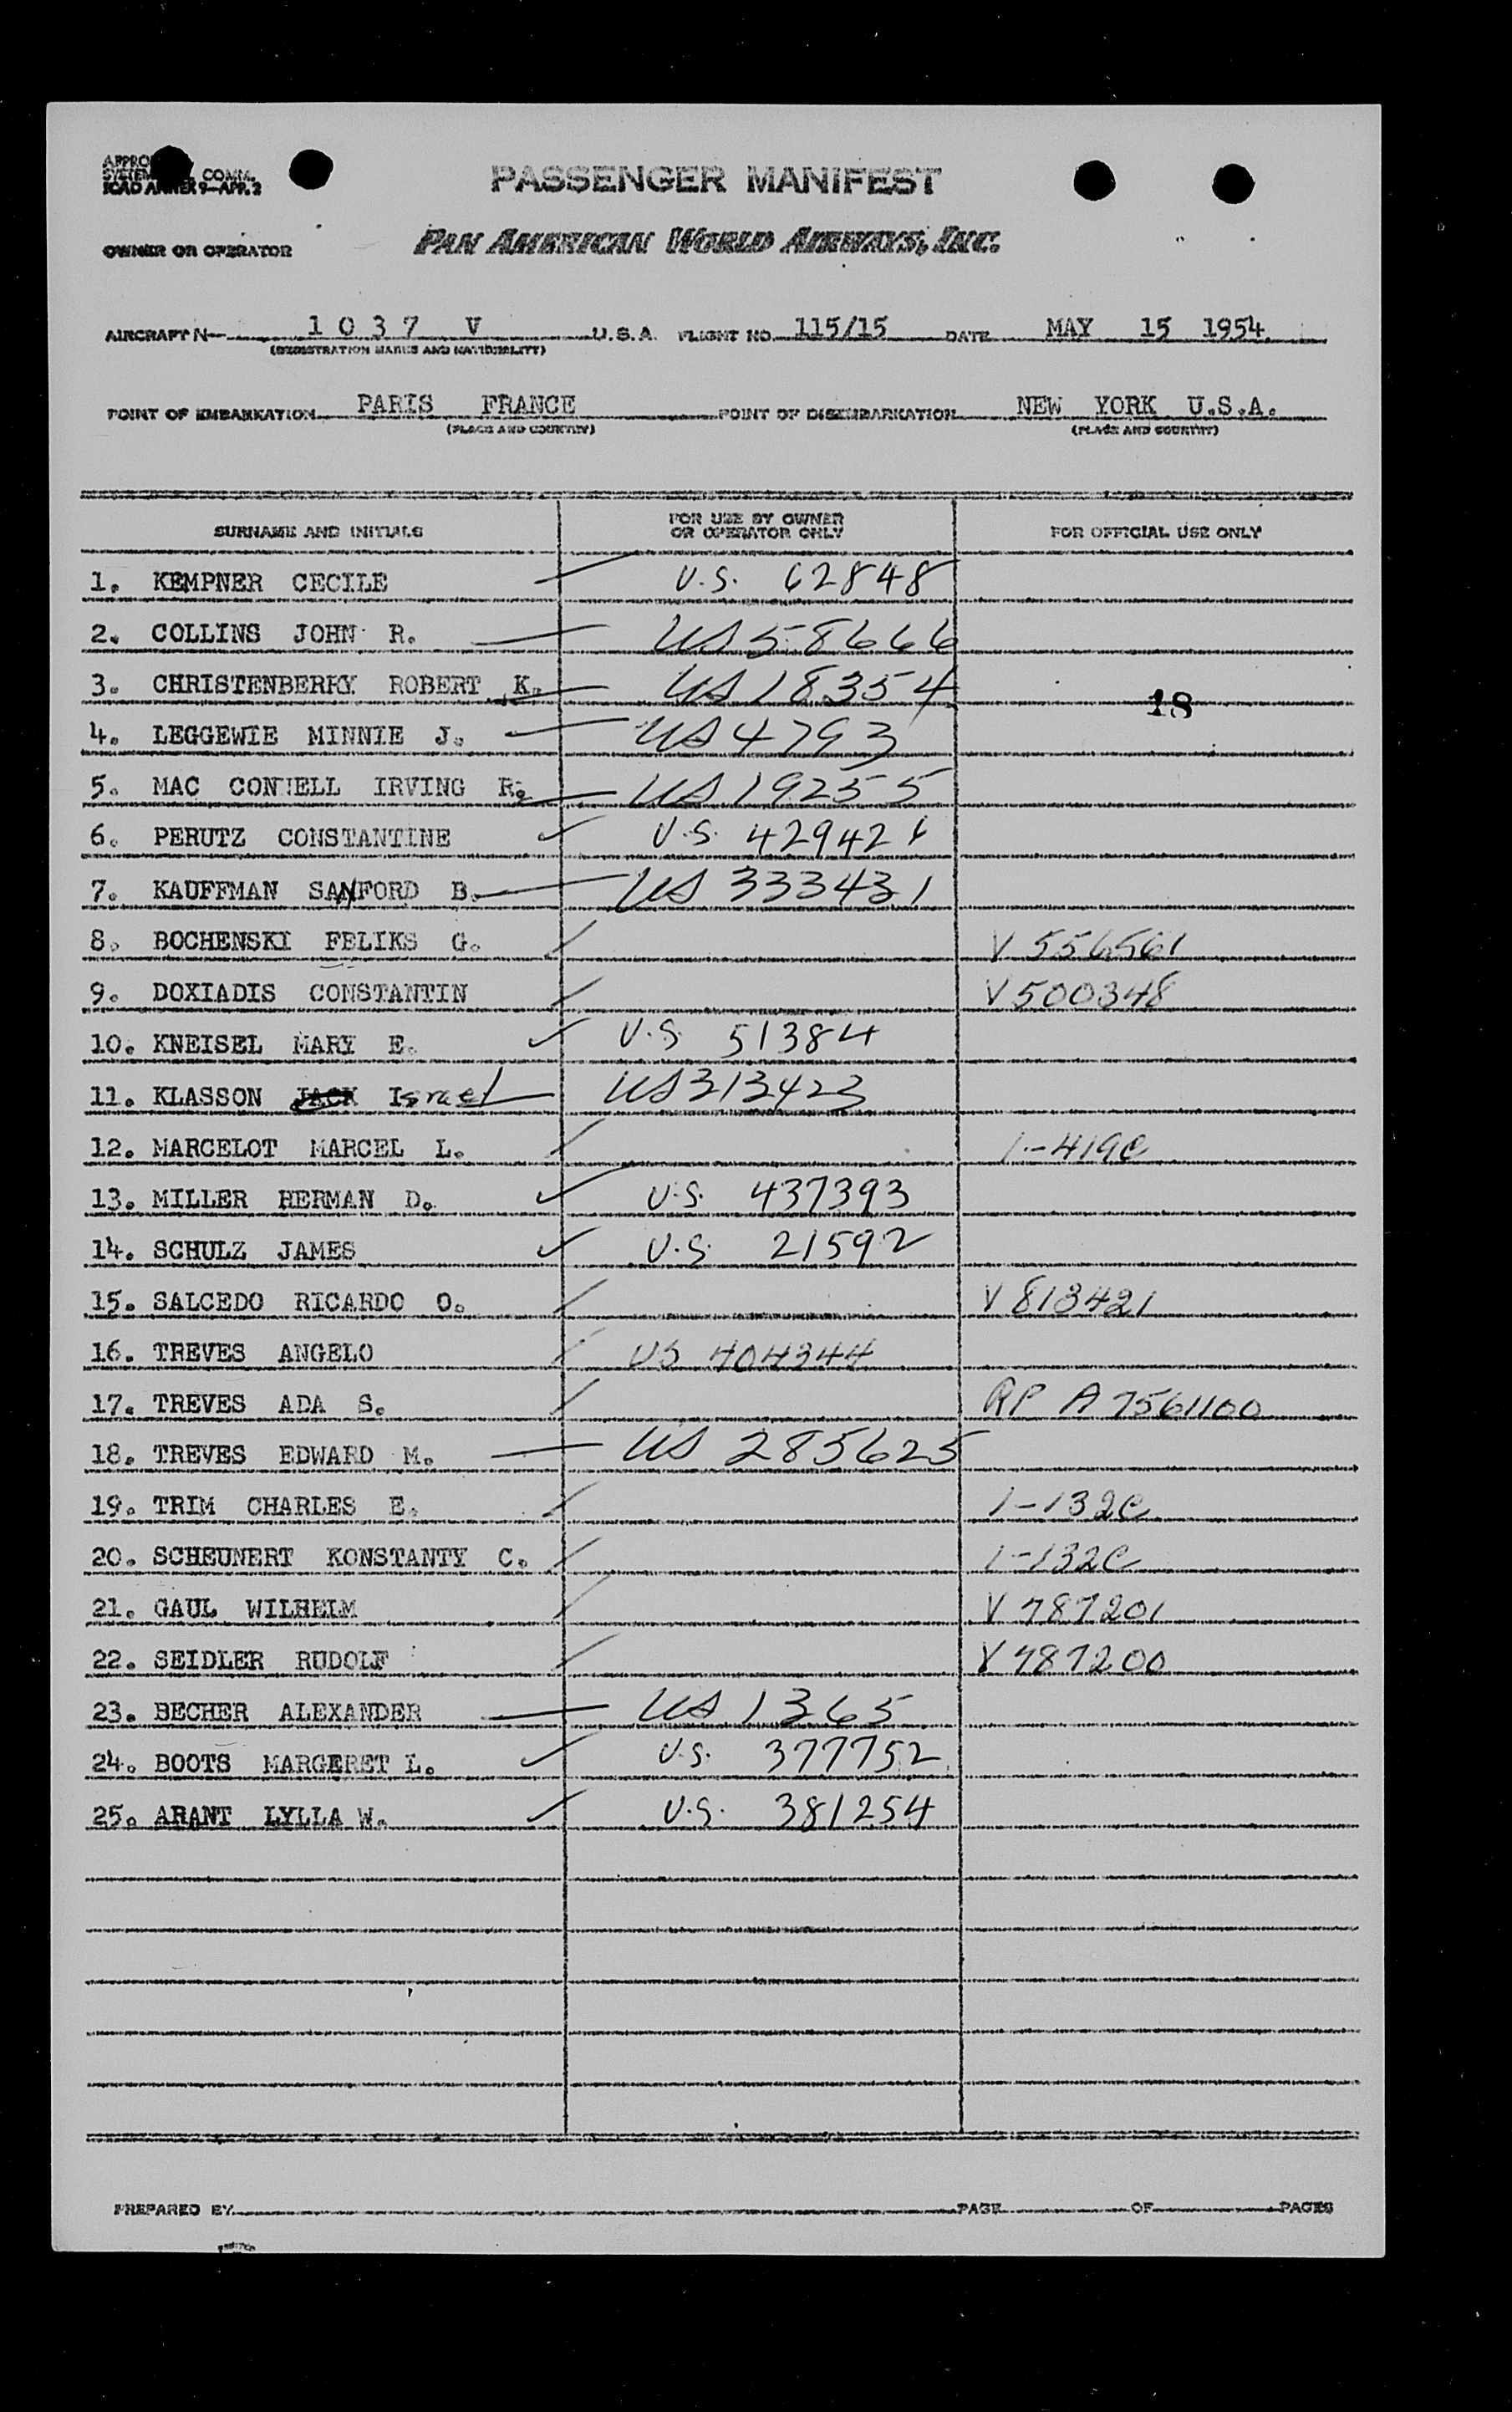 PASSENGER MANIFEST
ICAO ANNEX 9-APP. 2
OWNER OR OPERATOR PAN AMERICAN WORLD AIRWAYS, INC.
AIRCRAFT N- 1037 V U.S.A. FLIGHT NO. 115/15 DATE MAY 15 1954.
(REGISTRATION MARKS AND NATIONALITY)
POINT OF EMBARKATION PARIS FRANCE POINT OF DISEMBARKATION NEW YORK U.S.A.
(PLACE AND COUNTRY) (PLACE AND COUNTRY)
SURNAME AND INITIALS FOR USE BY OWNER OR OPERATOR ONLY FOR OFFICIAL USE ONLY
1. KEMPNER CECILE U.S. 62848
2. COLLINS JOHN R. US 58666
3. CHRISTENBERRY ROBERT K. US 18354
18
4. LEGGEWIE MINNIE J. US 4793
5. MAC CONNELL IRVING R. US 19255
6. PERUTZ CONSTANTINE U.S.
7. KAUFFMAN SANFORD B. US 333431
8. BOCHENSKI FELIKS G. V 556561
9. DOXIADIS CONSTANTIN V 500348
10. KNEISEL MARY E. U.S. 51384
11. KLASSON JACK Israel US 313423
12. MARCELOT MARCEL L. 1-419C
13. MILLER HERMAN D. U.S. 437393
14. SCHULZ JAMES U.S. 21592
15. SALCEDO RICARDO O. V 813421
16. TREVES ANGELO US 404344
17. TREVES ADA S. RP A7561100
18. TREVES EDWARD M. US 285625
19. TRIM CHARLES E. 1-132C
20. SCHEUNERT KONSTANTY C. 1-132C
21. GAUL WILHELM V 787201
22. SEIDLER RUDOLF V 787200
23. BECHER ALEXANDER US 1365
24. BOOTS MARGERET L. U.S. 377752
25. ARANT LYLLA W. U.S. 381254
PREPARED BY PAGE OF PAGES